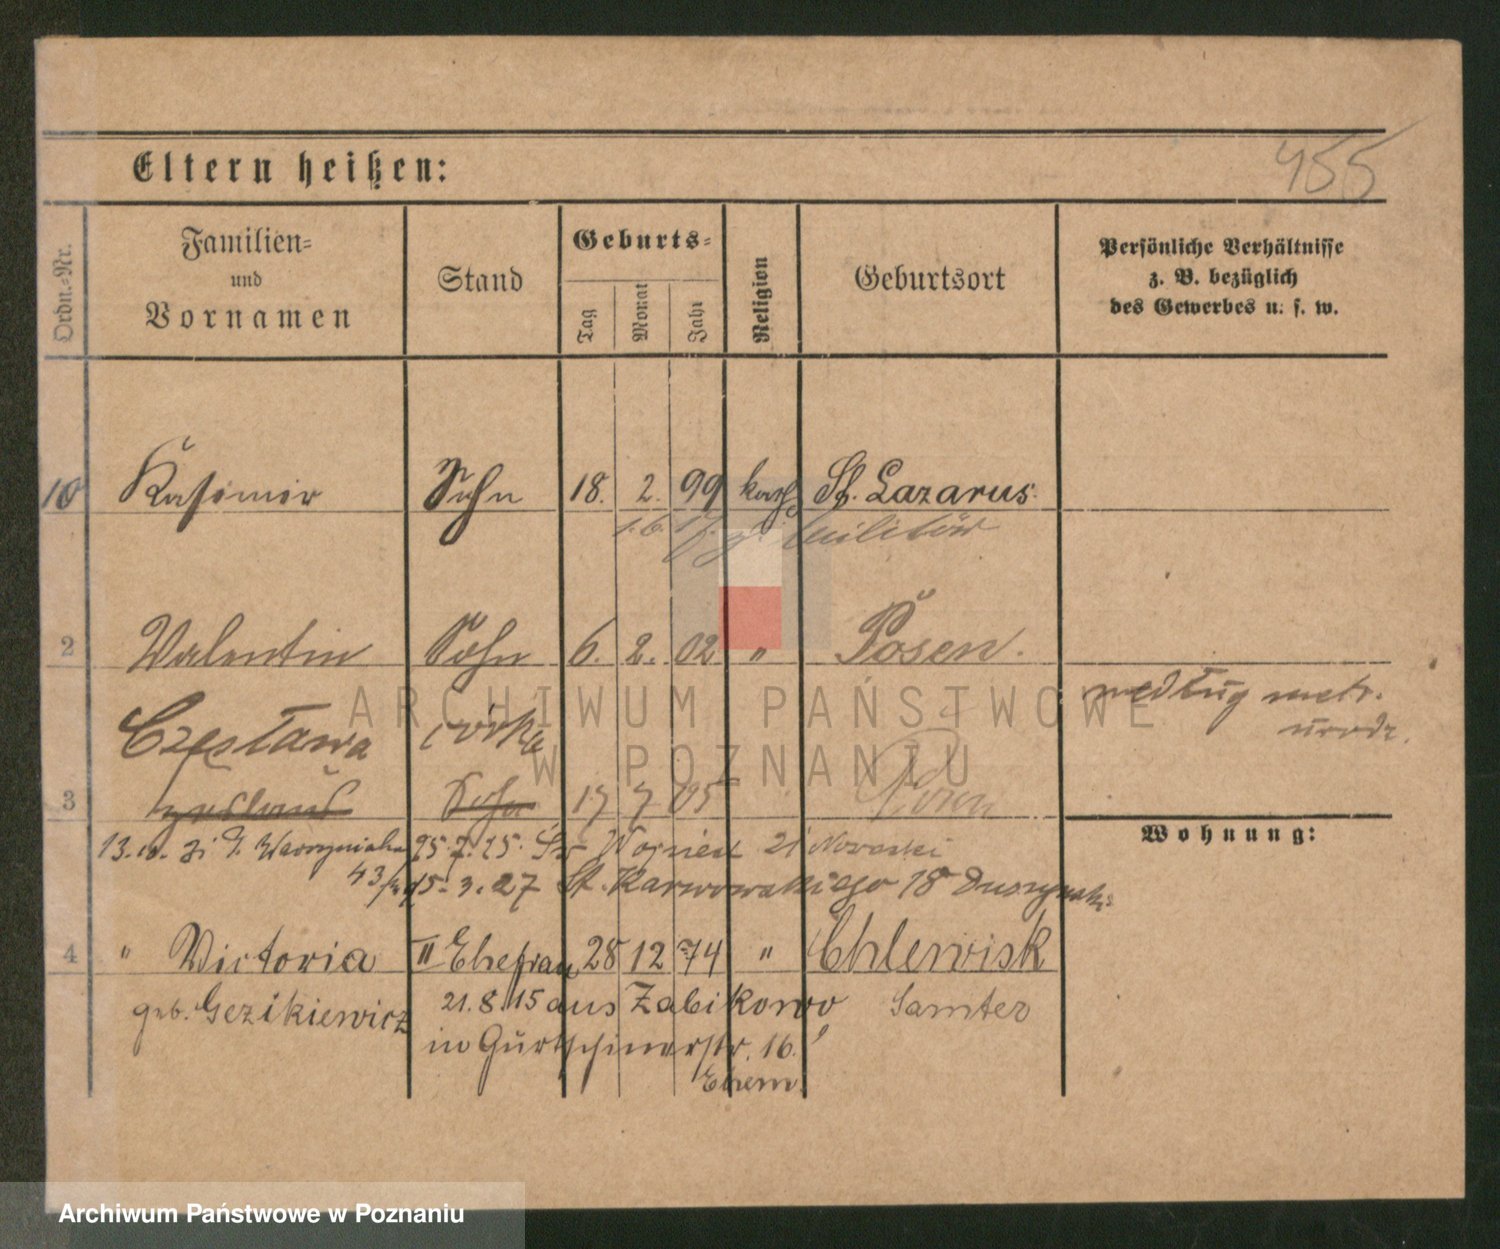 455
Eltern heißen:
Ordn.-Nr.
Familien-
und
Vornamen
Stand
Geburts-
Tag
Monat
Jahr
Religion
Geburtsort
Persönliche Verhältnisse
z. B. bezüglich
des Gewerbes u. s. w.
10 Kasimir Sohn 18. 2. 99 kath St. Lazarus.
Militär
2 Valentin Sohn 6. 2. 02 " Posen.
według metr.
urodz.
Czesława córka
3 Sohn 17 7 05 Posen
Wohnung:
13.10. 25.7.25. Wojciech 21 Nowacki
43/44 15.3.27 St. Karwowskiego 18
4 " Victoria II Ehefrau 28 12 74 " Chlewisk
geb. Gezikiewicz 21.8.15 aus Zabikowo Samter
in Gurtschinerstr. 16.
Ehem.
ARCHIWUM PAŃSTWOWE
W POZNANIU
Archiwum Państwowe w Poznaniu